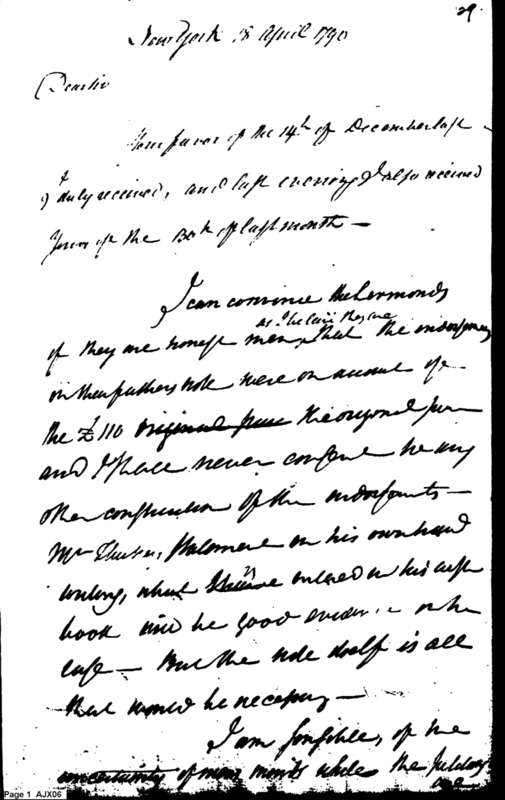 29.
New York 18 April 1790
Dear Sir
Your favor of the 14th of December last
I duly received, and last evening I also received
Your of the 30th of last month —
I can convince the Lermonds
as I believe they are
if they are honest men, that the indorsements
on their fathers note were on account of
the £110 original sum the original sum
and I shall never consent to any
other construction of the indorsments —
Mr Thatcher, Statement on his own hand
writing, which is entered in his
book will be good in the
case — But the note itself is all
that would be necessary —
I am sensible, of the
uncertainty of many minds while the
are
Page 1 AJX06